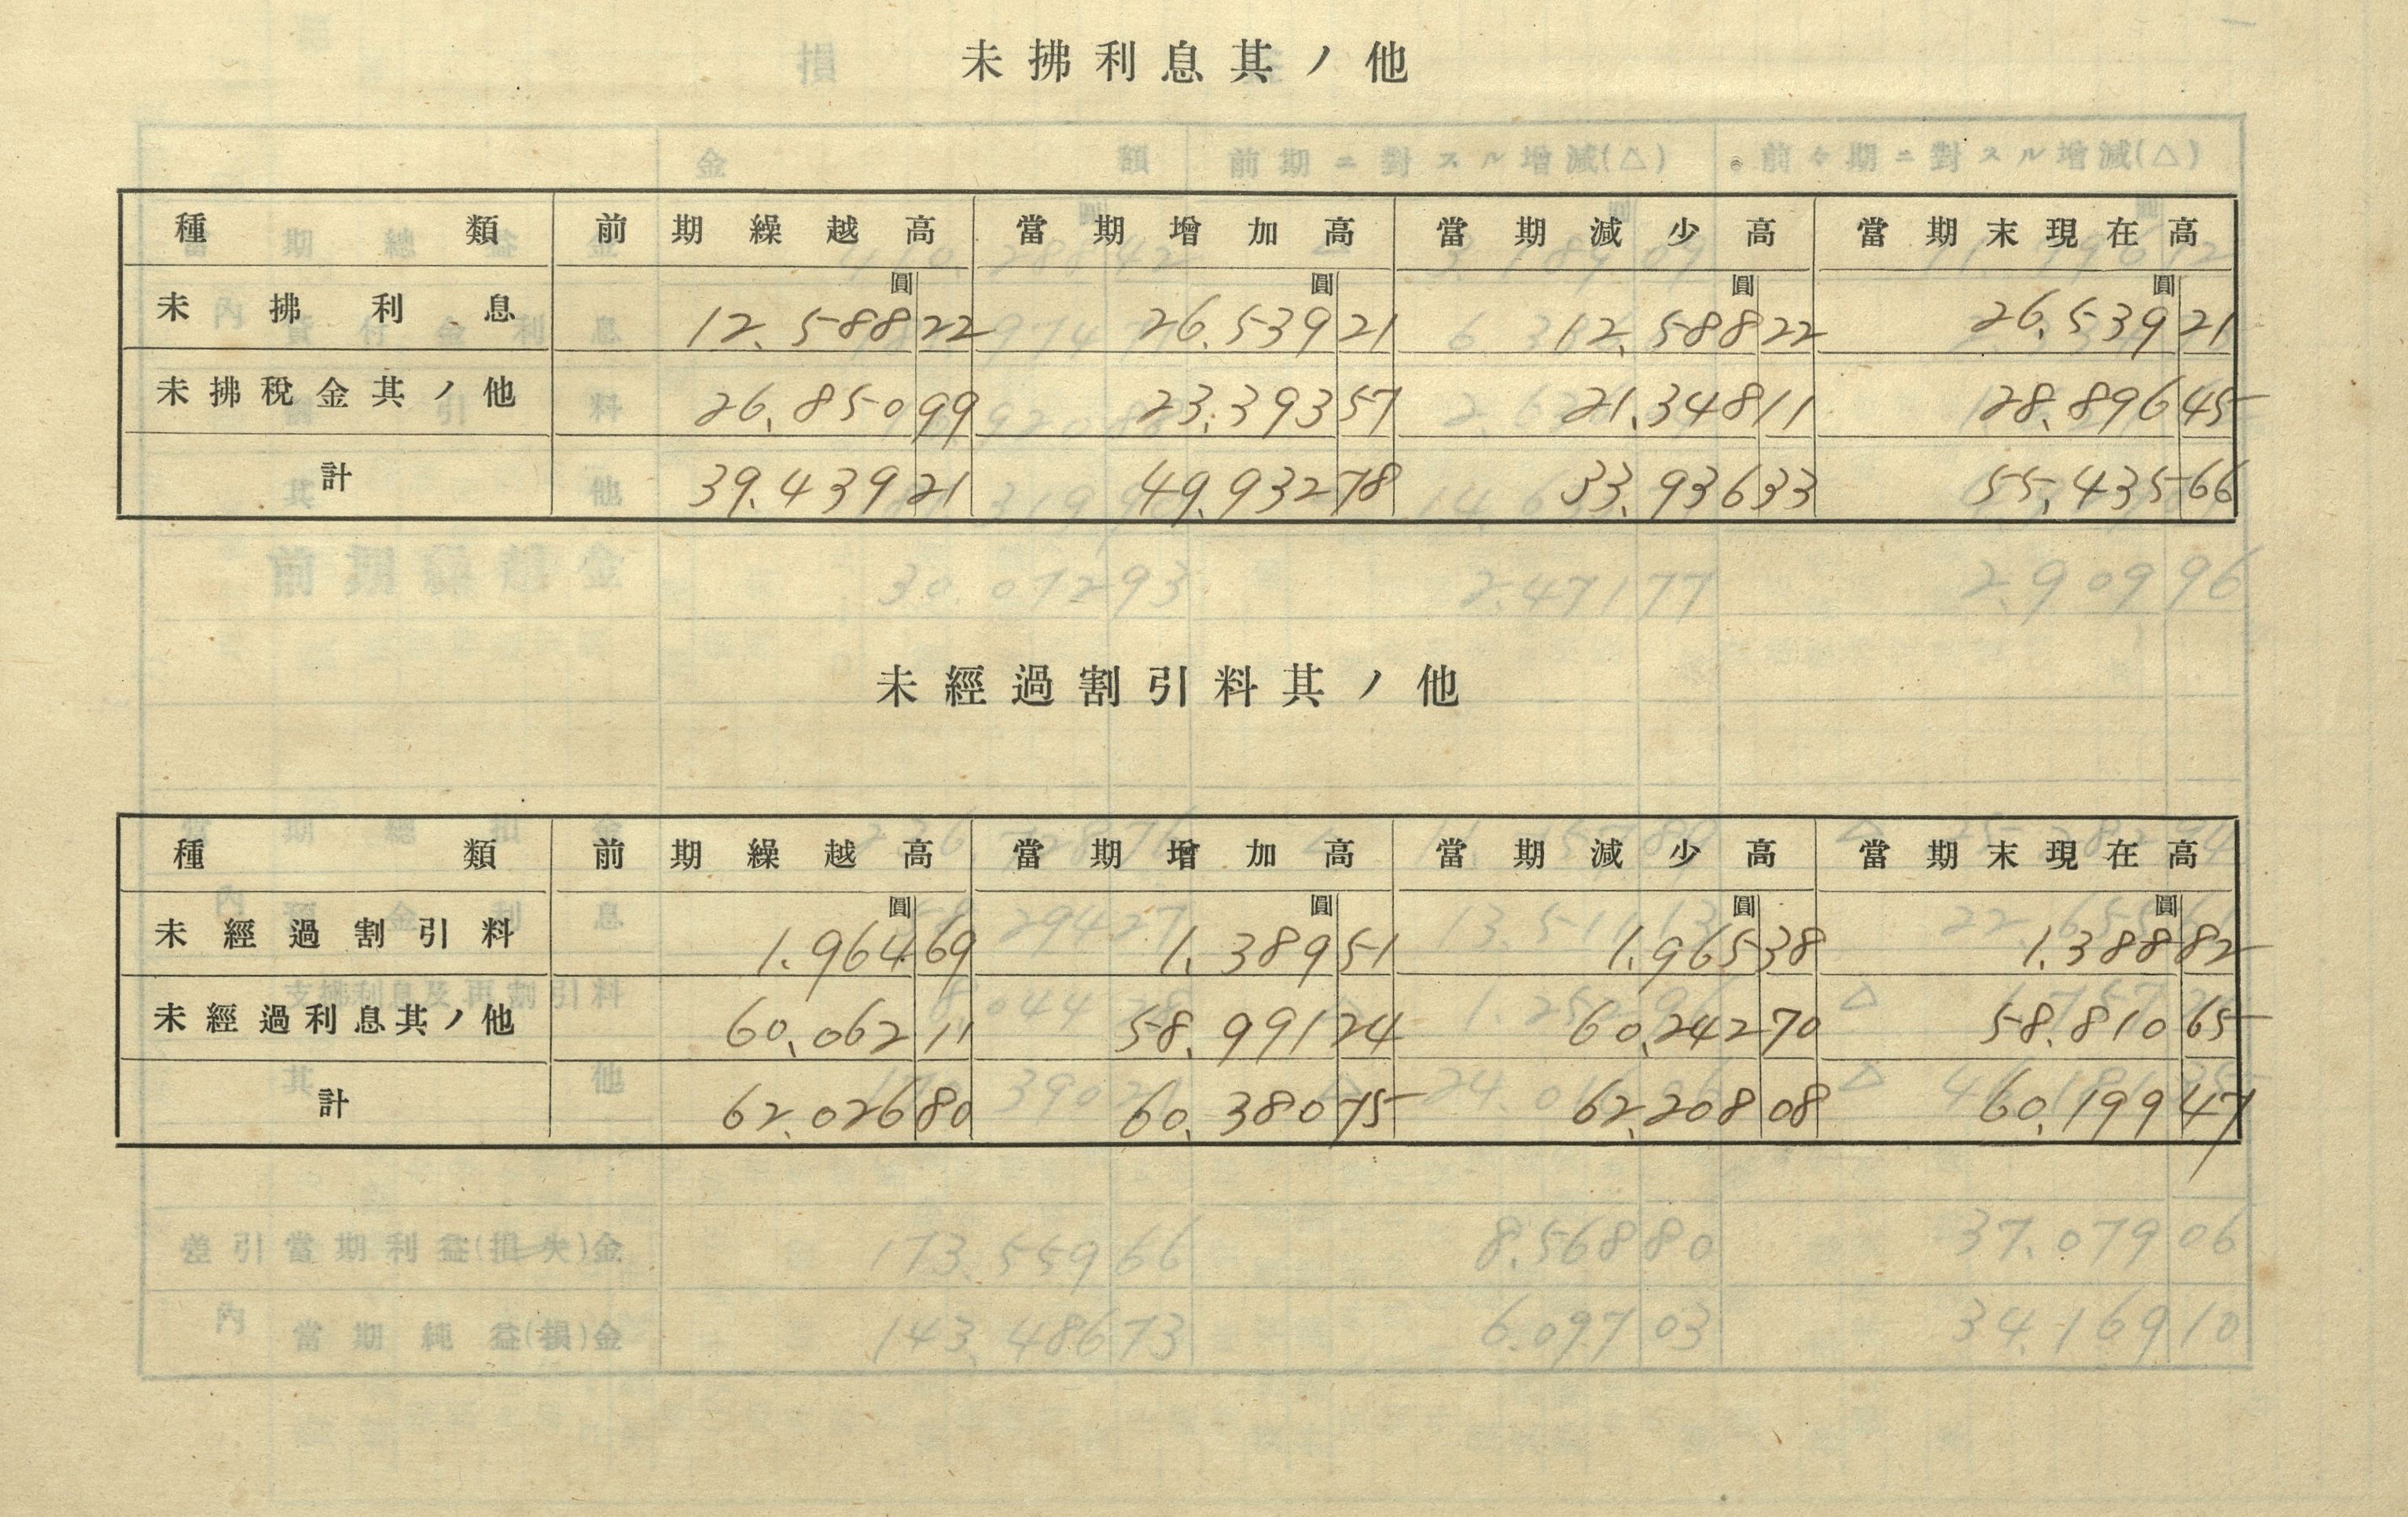 未拂利息其ノ他
種類 前期繰越高 當期增加高 當期減少高 當期末現在高
圓 圓 圓 圓
未拂利息 12.588 22 26.539 21 12.588 22 26.539 21
未拂稅金其ノ他 26.850 99 23.393 57 21.348 11 28.896 45
計 39.439 21 49.932 78 33.936 33 55.435 66
未經過割引料其ノ他
種類 前期繰越高 當期增加高 當期減少高 當期末現在高
圓 圓 圓 圓
未經過割引料 1.964 69 1.389 51 1.965 38 1.388 82
未經過利息其ノ他 60.062 11 58.991 24 60.242 70 58.810 65
計 62.026 80 60.380 75 62.208 08 60.199 47